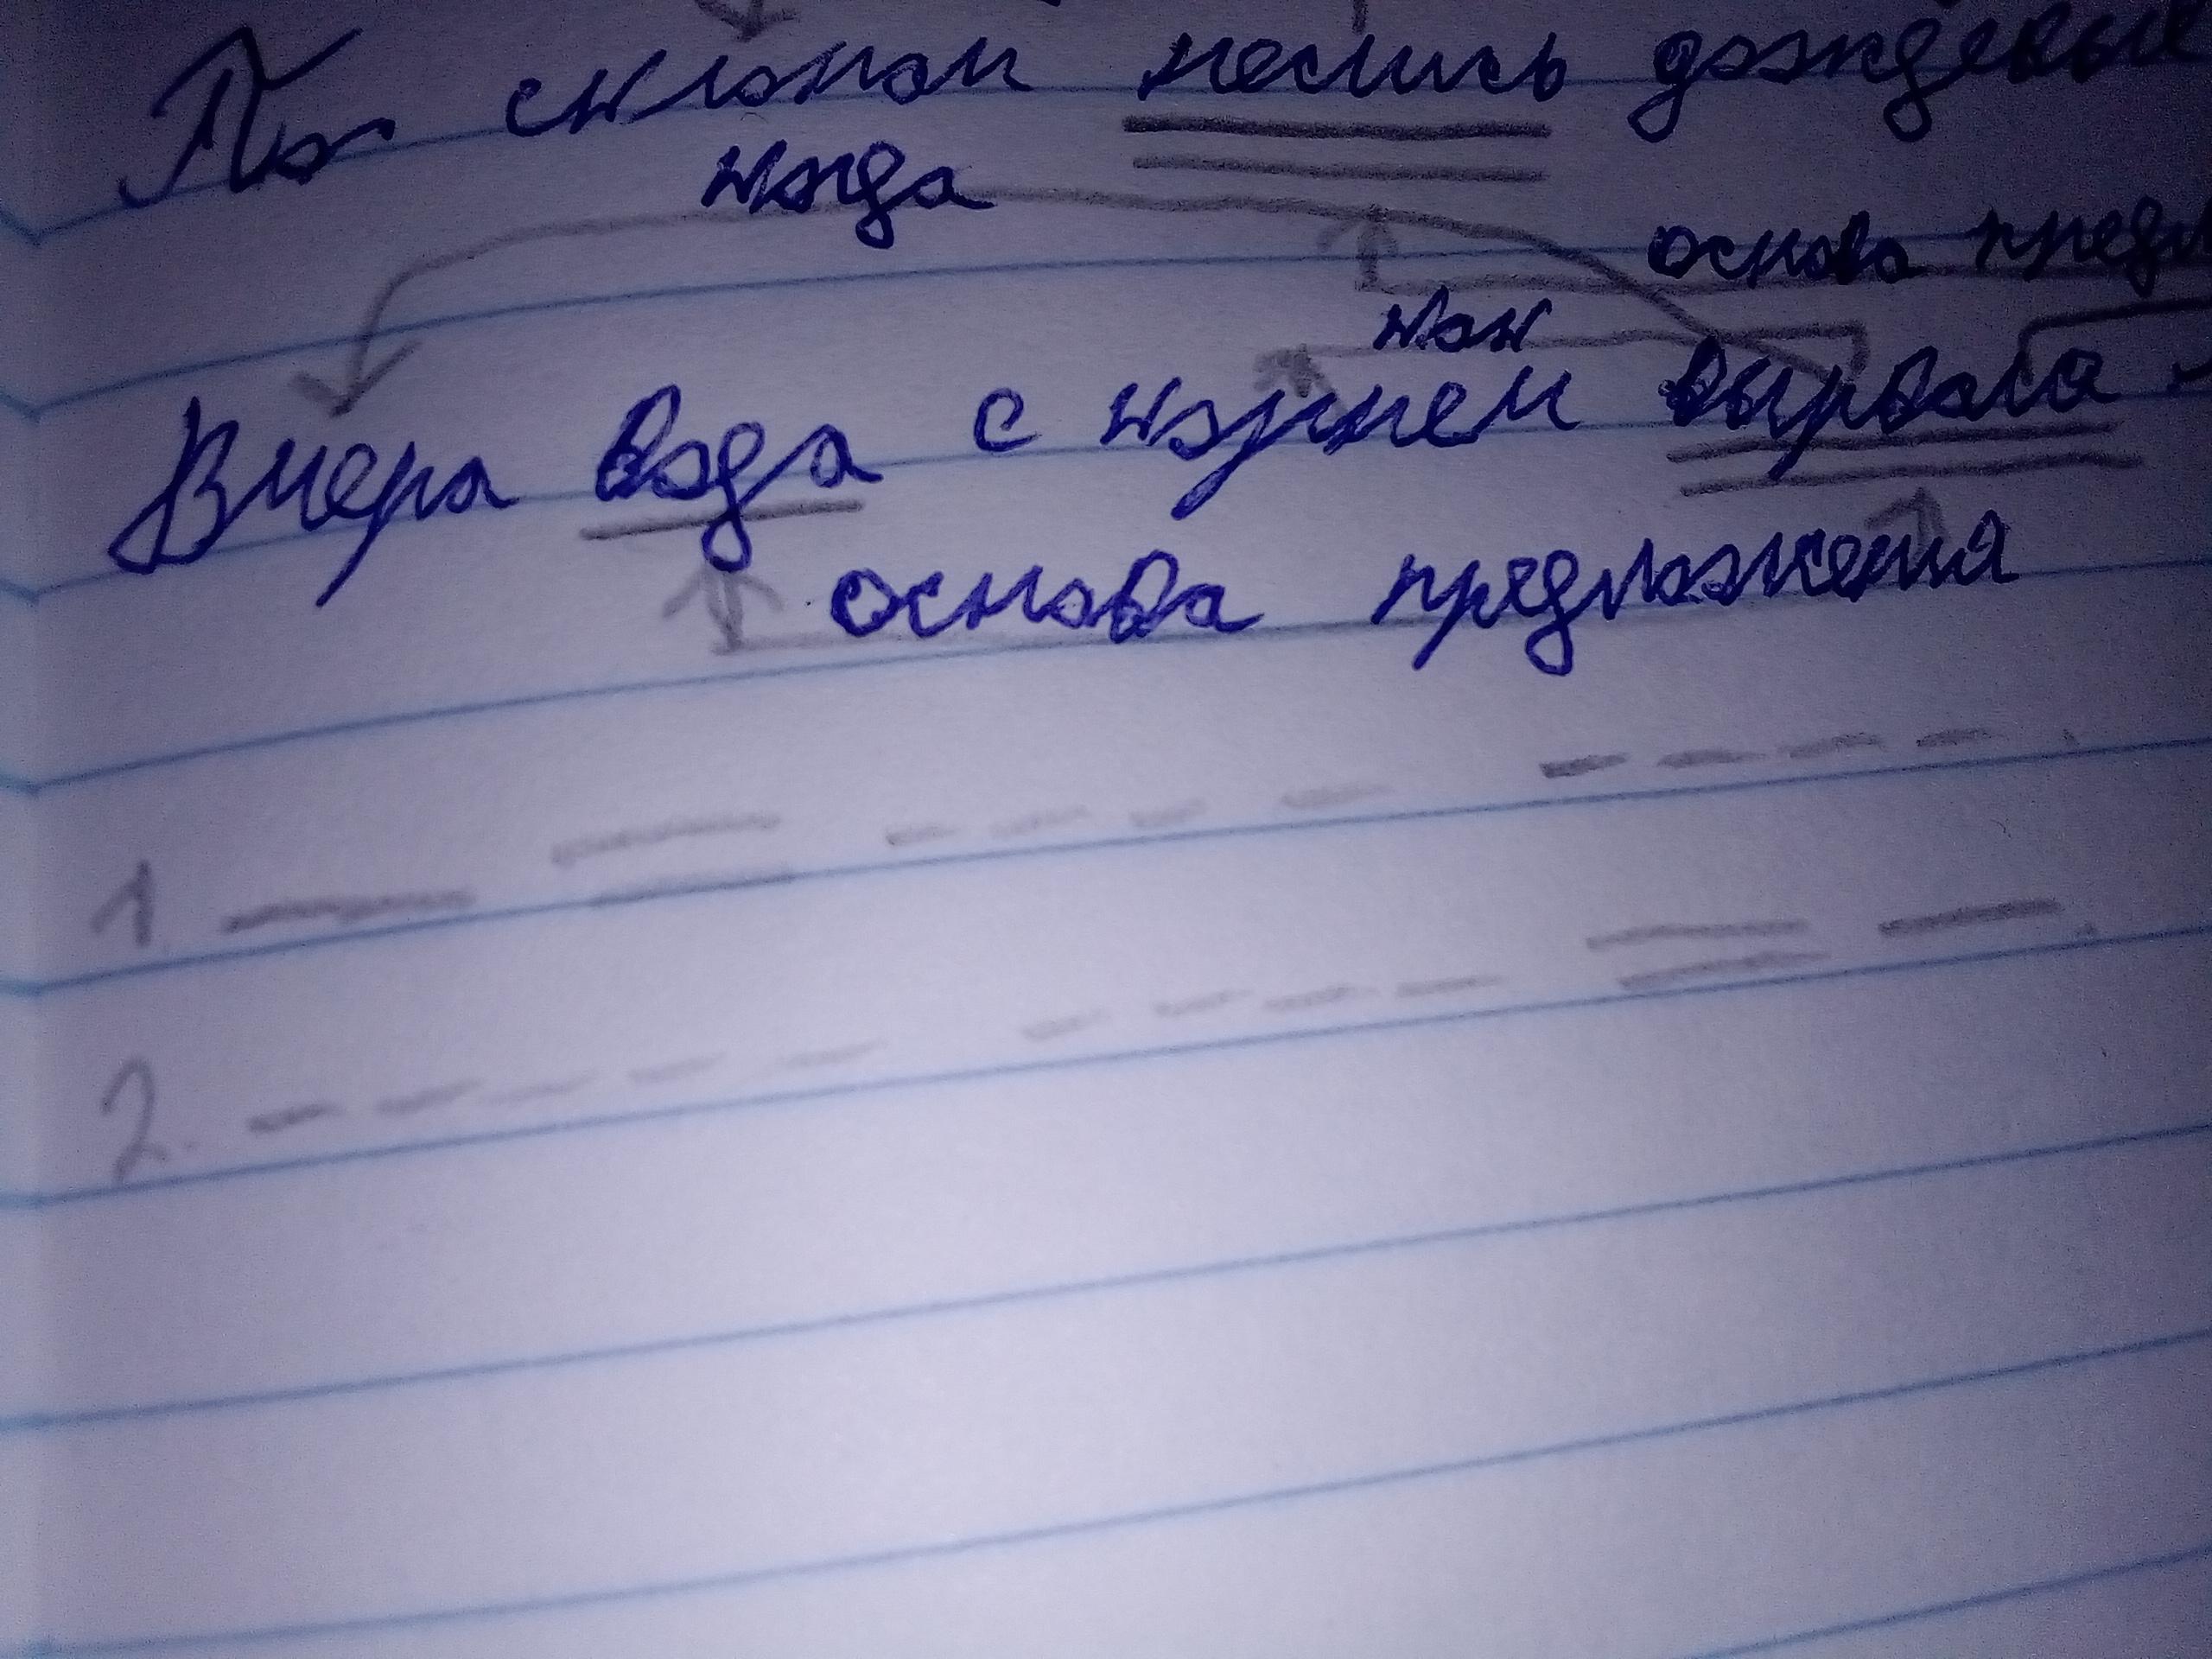 По склонам неслись дождевые
когда
основа предл
как
Вчера вода с корнем вырвала
основа предложения
1.
2.